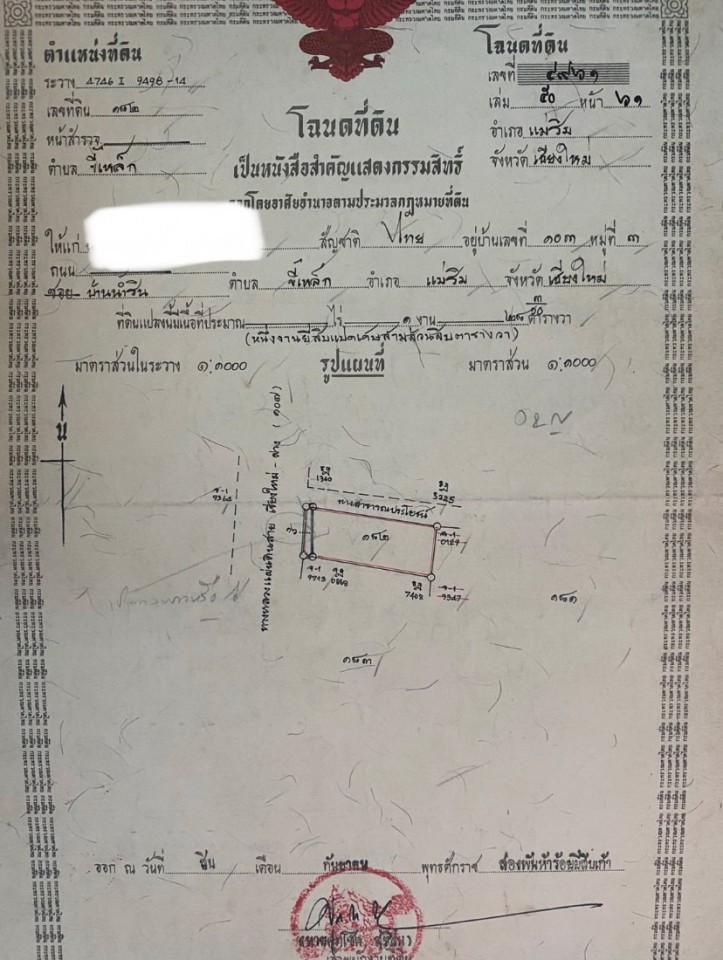 ตำแหน่งที่ดิน
ระวาง 4746 I 9498-14
เลขที่ดิน ๑๘๒
หน้าสำรวจ
ตำบล ขี้เหล็ก
โฉนดที่ดิน
เลขที่ ๔๙๖๑
เล่ม ๕๐ หน้า ๖๑
อำเภอ แม่ริม
จังหวัด เชียงใหม่
โฉนดที่ดิน
เป็นหนังสือสำคัญแสดงกรรมสิทธิ์
ออกโดยอาศัยอำนาจตามประมวลกฎหมายที่ดิน
ให้แก่ สัญชาติ ไทย อยู่บ้านเลขที่ ๑๐๓ หมู่ที่ ๓
ถนน
ซอย บ้านน้ำริน ตำบล ขี้เหล็ก อำเภอ แม่ริม จังหวัด เชียงใหม่
ที่ดินแปลงนี้มีเนื้อที่ประมาณ ไร่ ๑ งาน ๒๘ ๓/20 ตารางวา
(หนึ่งงานยี่สิบแปดเศษสามส่วนสิบตารางวา)
มาตราส่วนในระวาง ๑:๑000 รูปแผนที่ มาตราส่วน ๑:๑000
น
1340
3225
9364
ทางสาธารณประโยชน์
ทางหลวงแผ่นดินสาย เชียงใหม่ - ฝาง (๑๐๗)
๑๘๒
0127
9713
0668
7408
9547
๑๘๑
๑๘๓
ออก ณ วันที่ สิบ เดือน กันยายน พุทธศักราช สองพันห้าร้อยยี่สิบเก้า